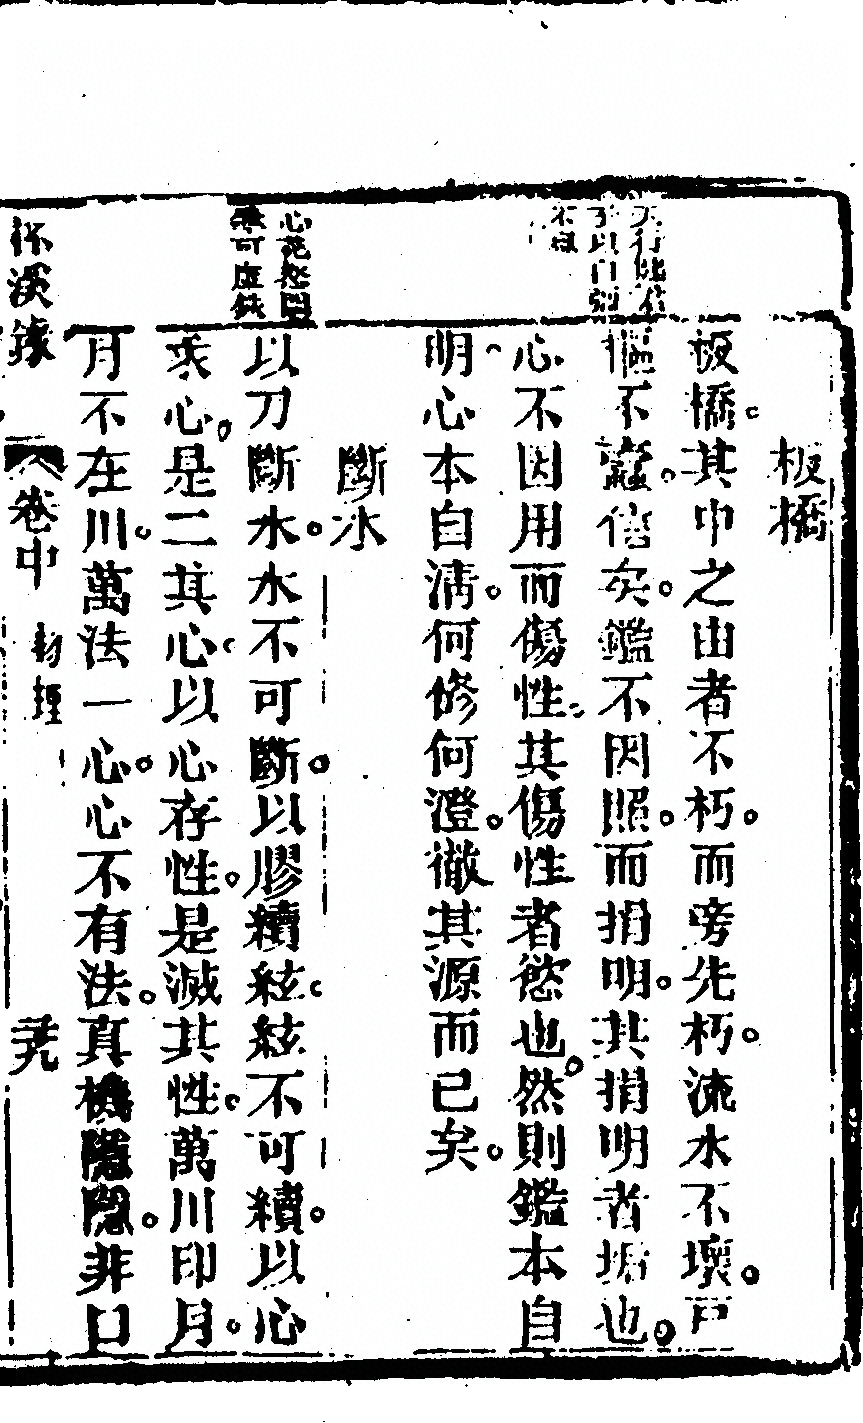 板橋
板橋。其中之由者不朽。而旁先朽。流水不壞。戸
樞不蠹。信矣。鑑不因照。而捐明。其捐明者垢也。
心不因用而傷性。其傷性者慾也。然則鑑本自
明、心本自淸。何修何澄。徹其源而已矣。
斷水
以刀斷水。水不可斷。以膠續絃。絃不可續。以心
求心。是二其心。以心存性。是滅其性。萬川印月。
月不在川。萬法一心。心不有法。真機隱隱。非口
天行健君
子以自强
不息
心花發開
卷中